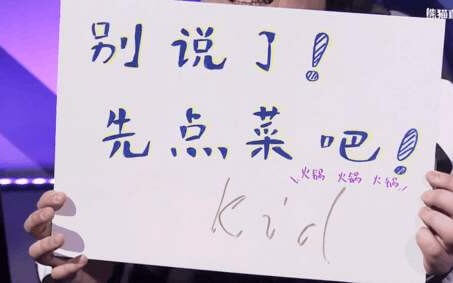 熊猫直
别说了!
先点菜吧!
\火锅 火锅 火锅/
Kid